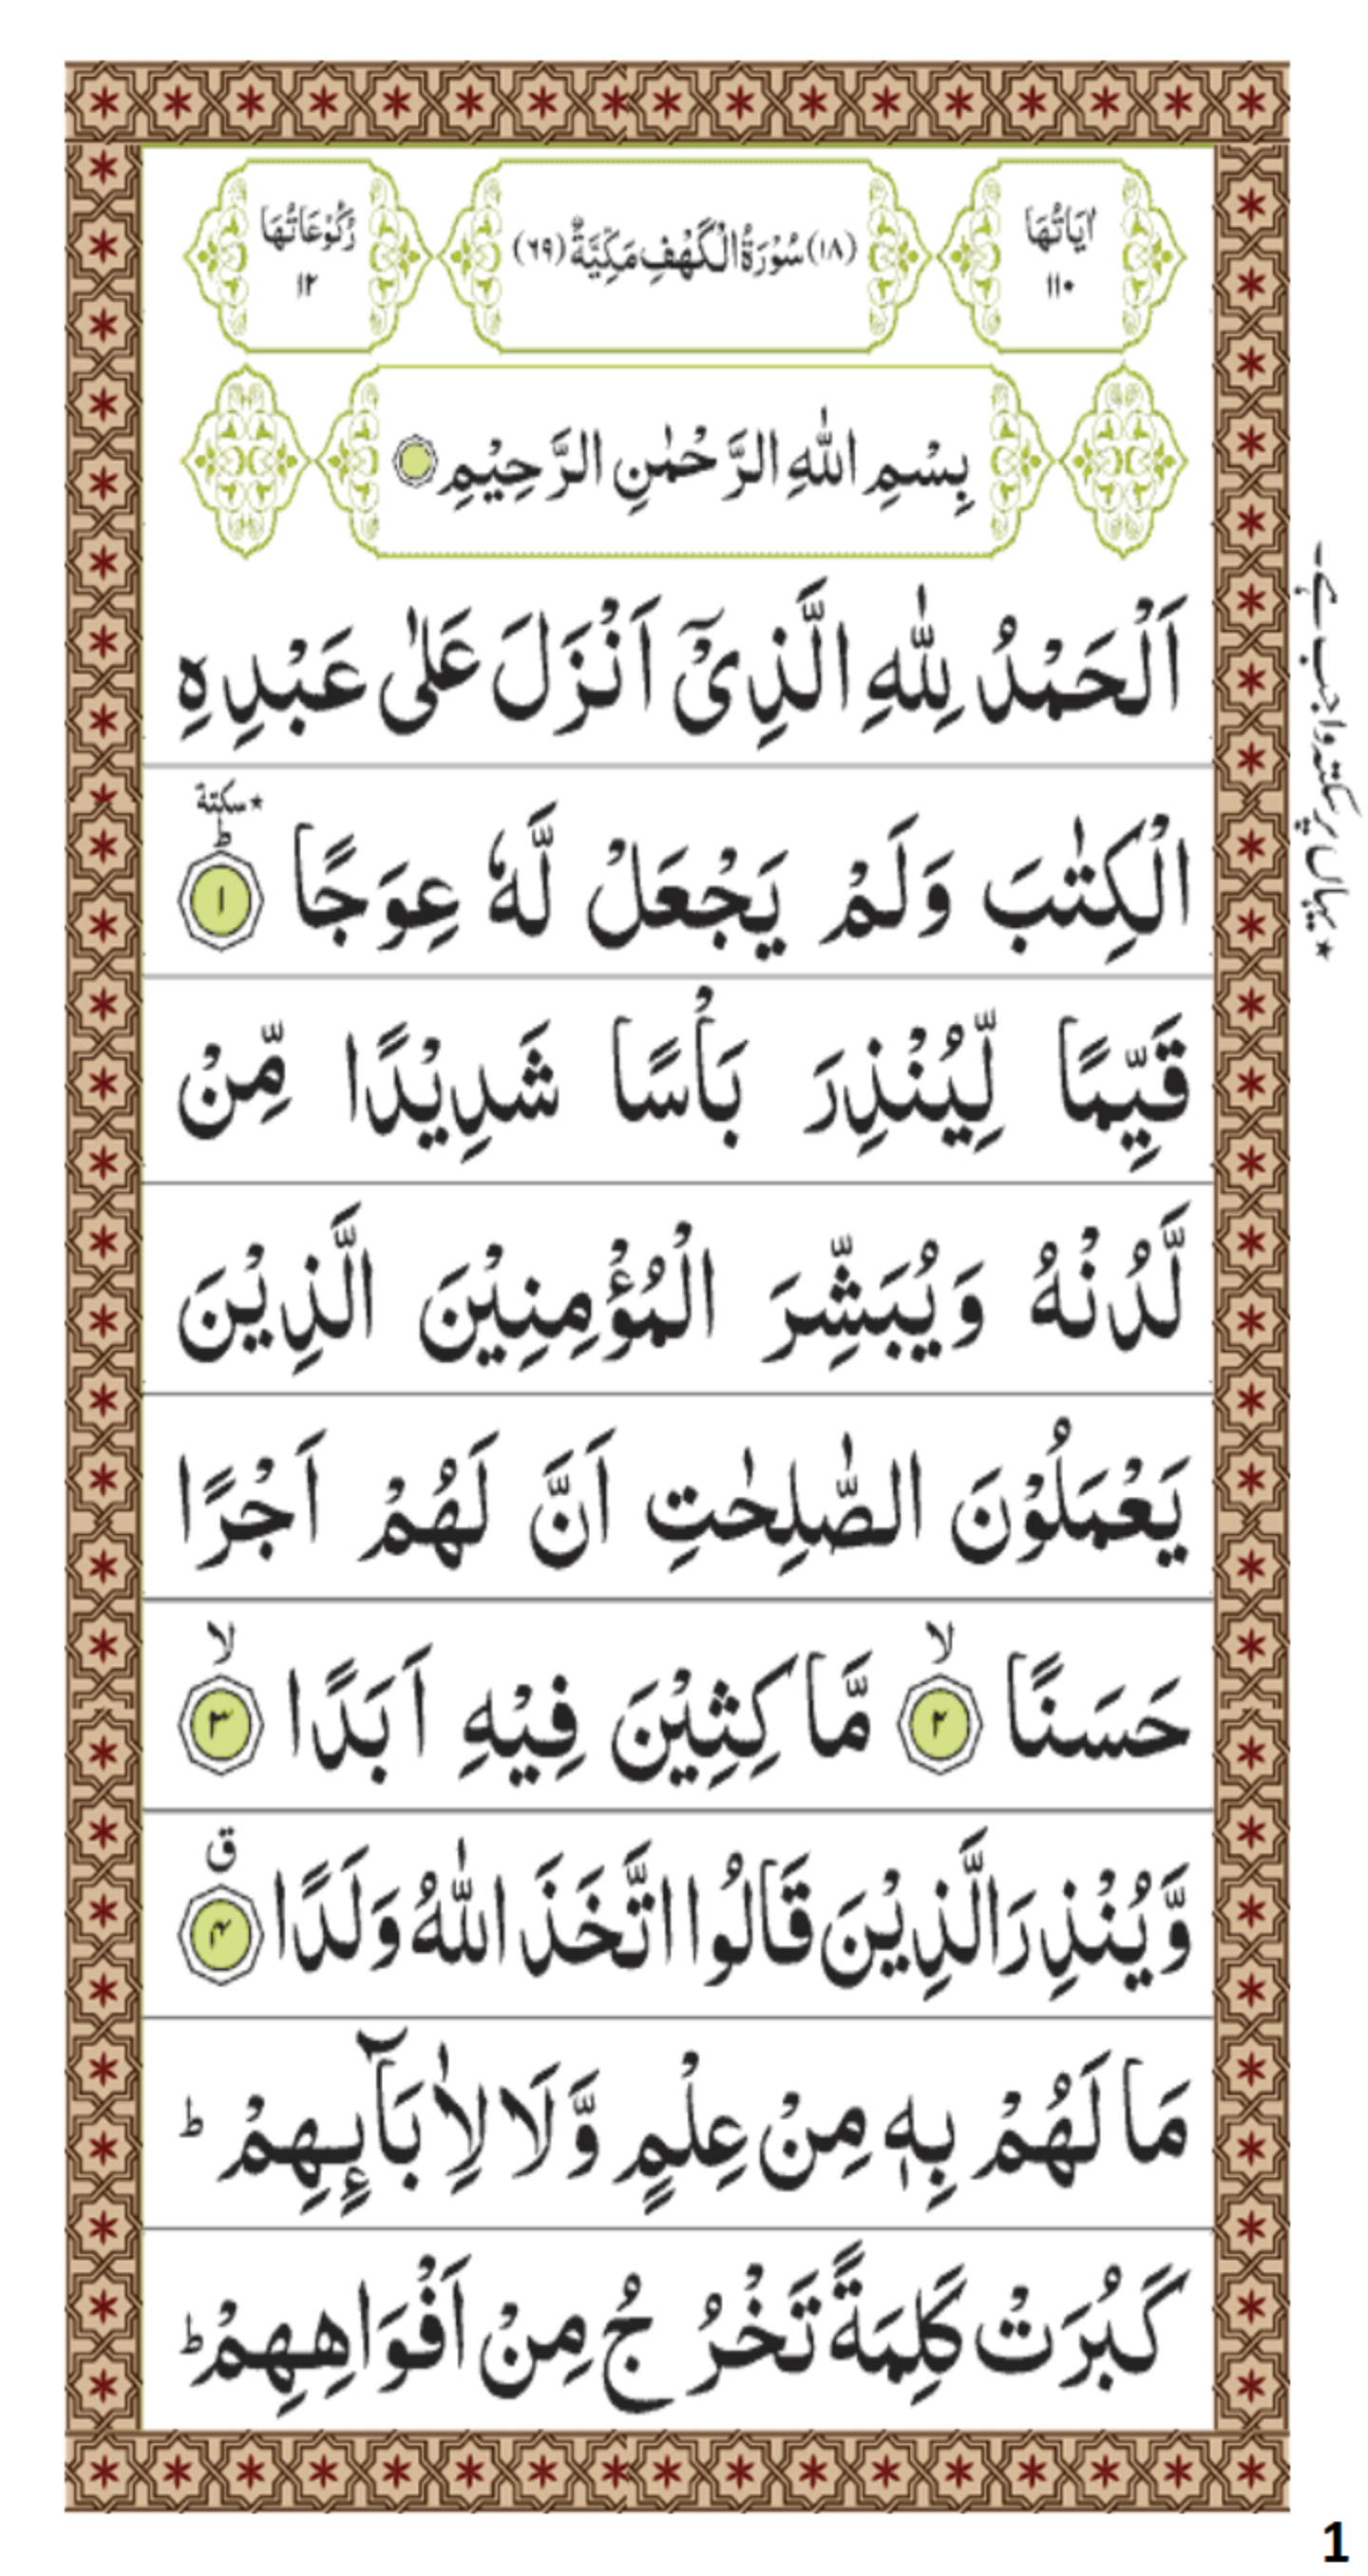 اٰيَاتُهَا
۱۱۰
(۱۸) سُوْرَةُ الْكَهْفِ مَكِّيَّةٌ (۶۹)
رُكُوْعَاتُهَا
۱۲
بِسْمِ اللّٰهِ الرَّحْمٰنِ الرَّحِيْمِ
اَلْحَمْدُ لِلّٰهِ الَّذِىْۤ اَنْزَلَ عَلٰى عَبْدِهِ
الْكِتٰبَ وَلَمْ يَجْعَلْ لَّهٗ عِوَجًا ٭سكتة ؕ ۱
قَيِّمًا لِّيُنْذِرَ بَاْسًا شَدِيْدًا مِّنْ
لَّدُنْهُ وَيُبَشِّرَ الْمُؤْمِنِيْنَ الَّذِيْنَ
يَعْمَلُوْنَ الصّٰلِحٰتِ اَنَّ لَهُمْ اَجْرًا
حَسَنًا ۙ ۲ مَّاكِثِيْنَ فِيْهِ اَبَدًا ۙ ۳
وَّيُنْذِرَ الَّذِيْنَ قَالُوا اتَّخَذَ اللّٰهُ وَلَدًا ق ۴
مَا لَهُمْ بِهٖ مِنْ عِلْمٍ وَّلَا لِاٰبَآئِهِمْ ؕ
كَبُرَتْ كَلِمَةً تَخْرُجُ مِنْ اَفْوَاهِهِمْ ؕ
٭ یہاں پر سکتہ واجب ہے۔
1